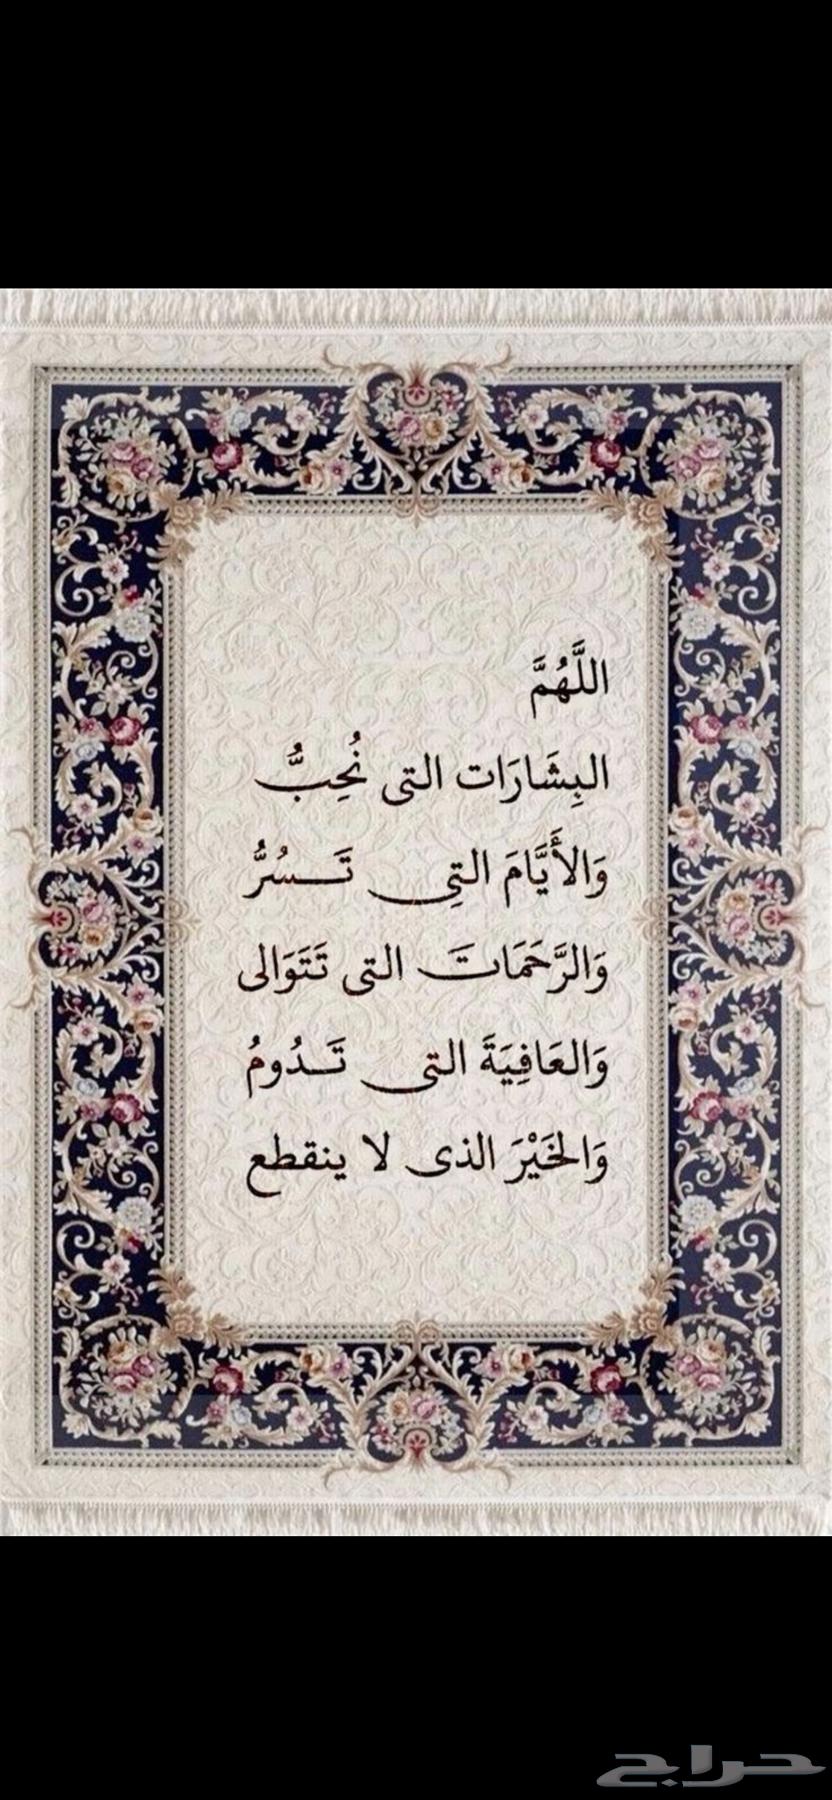 اللَّهُمَّ
البِشَارَات التى نُحِبُّ
وَالأَيَّامَ التِى تَـــسُرُّ
وَالرَّحَمَاتَ التى تَتَوَالى
وَالعَافِيَةَ التى تَــدُومُ
وَالخَيْرَ الذى لا ينقطع
حراج